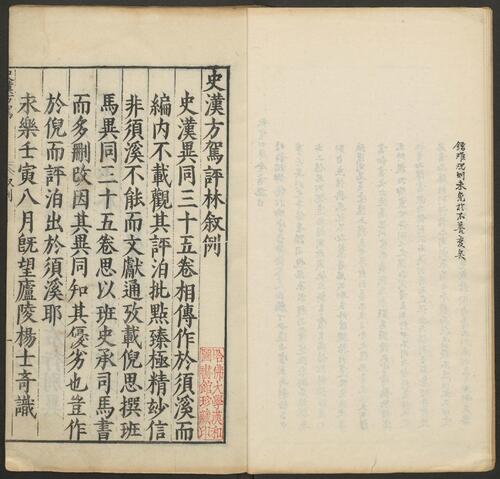 未免於不善變矣
史漢方駕評林叙例
史漢異同三十五卷相傳作於須溪而
編内不載觀其評泊批點臻極精玅信
非須溪不能而文獻通攷載倪思撰班
馬異同三十五卷思以班史承司馬書
而多刪改因其異同知其優劣也豈作
於倪而評泊出於須溪耶
永樂壬寅八月既望廬陵楊士奇識
哈佛大學漢和
圖書館珍藏印